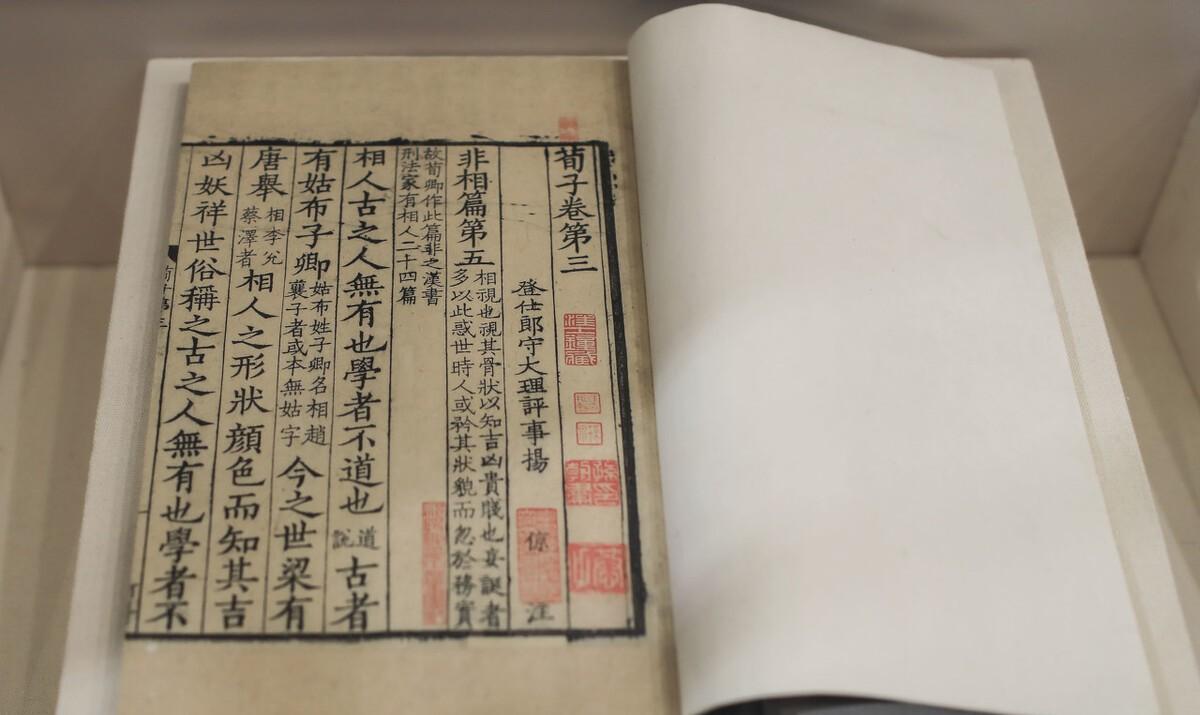 荀子卷第三
登仕郎守大理評事揚倞注
非相篇第五
相視也視其骨狀以知吉凶貴賤也妄誕者
多以此惑世時人或矜其狀貌而忽於務實
故荀卿作此篇非之漢書
刑法家有相人二十四篇
相人古之人無有也學者不道也
道
說
古者
有姑布子卿
姑布姓子卿名相趙
襄子者或本無姑字
今之世梁有
唐舉
相李兊
蔡澤者
相人之形狀顔色而知其吉
凶妖祥世俗稱之古之人無有也學者不